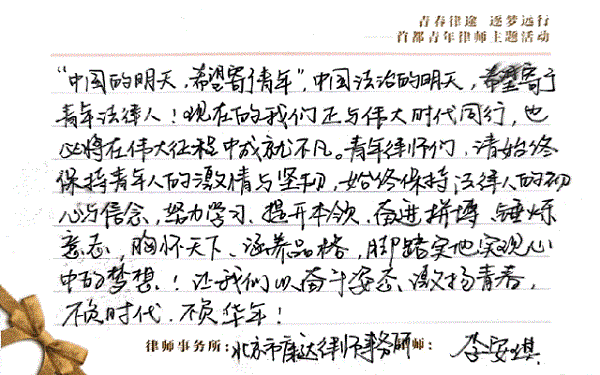 青春律途 逐梦远行
首都青年律师主题活动
“中国的明天，希望寄予青年”，中国法治的明天，希望寄予
青年法律人！现在的我们正与伟大时代同行，也
必将在伟大征程中成就不凡。青年律师们，请始终
保持青年人的激情与坚韧，始终保持法律人的初
心与信念，努力学习、提升本领、奋进拼搏、锤炼
意志，胸怀天下、涵养品格，脚踏实地实现心
中的梦想！让我们以奋斗姿态、激扬青春，
不负时代、不负华年！
律师事务所：北京市康达律师事务所 师： 李安琪